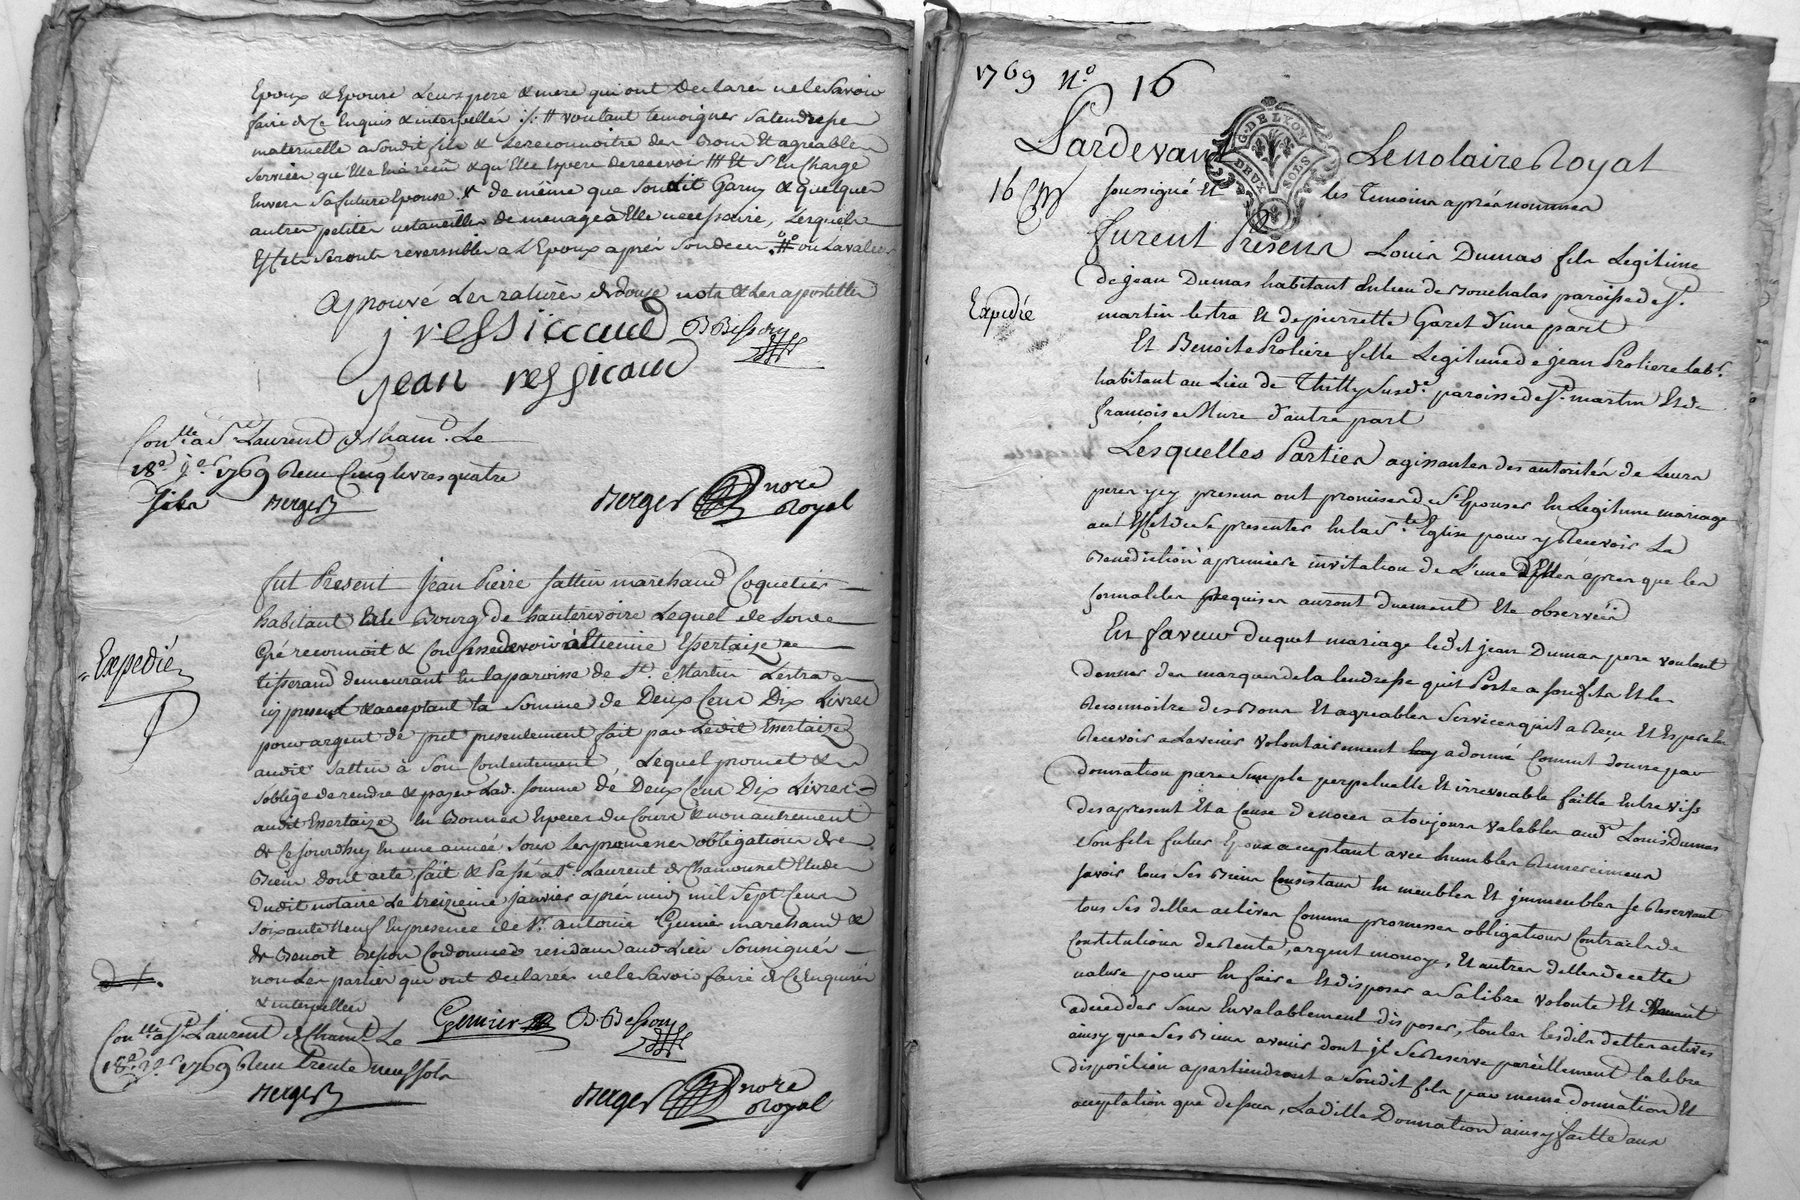 Epoux & Epouse Leurs pere & mere qui ont declaré ne le Savoir
faire de Ce Enquis & interpellés ./. # voulant temoigner Sa tendresse
maternelle a Sondit fils & Le reconnoitre des Bons Et agreables
Services qu'Elle En a reçu & qu'Elle Espere de recevoir ### Et S'En Charge
Envers Sa future Epouse. de même que Sondit Garny & quelques
autres petites ustancilles de menage a Elle necessaire, Lesquels
Effets Seronts reversibles a L'Epoux aprés Son deces .#. ou La valeur
Aprouvé Les ratures de douze mots & Les apostilles
j ressicaud B Besson
jean ressicaud
Con.lle a S.t Laurent de Cham.t Le
18.e j.er 1769 Reçu Cinq livres quatre
Sols Berger
Berger nore
Royal
Fut Present Jean Pierre Sattin marchand Coquetier
habitant au Bourg de hauterivoire Lequel de Son
Gré reconnoit & Confesse devoir à Etienne Essertaize
tisserand demeurant En la paroisse de S.t Martin Lestra
icy present & acceptant la Somme de Deux Cens Dix Livres
Expedié
pour argent de pret presentement fait par Ledit Essertaize
audit Sattin à Son Contentement, Lequel promet &
S'oblige de rendre & payer Lad. Somme de Deux Cens Dix Livres
audit Essertaize En Bonnes Especes du Cours & non autrement
de Cejourdhuy En une année, Sous Les promesses obligations de
Biens dont acte fait & Passé a S.t Laurent de Chamousset Etude
Dudit notaire Le treizieme janvier aprés midy mil Sept Cens
Soixante Neuf En presence de S.r Antoine Grenier marchand &
de Benoit Besson Cordonnier residans aud. Lieu Soussignés
non Les parties qui ont declarées ne le Savoir faire de Ce Enquises
& interpellées
Grenier B. Besson
Con.lle a S.t Laurent de Cham.t Le
18.e j.er 1769 Reçu Trente neuf Sols
Berger
Berger nore
Royal
1769 N.o 16
G. DE LYON
DEUX SOLS
Pardevant Le Notaire Royal
16
Soussigné Et les Temoins aprés nommés
Furent Présens Louis Dumas fils Legitime
de jean Dumas habitant du lieu de Bouchalas paroisse de S.t
Expedié
martin lestra Et de pierrette Garet d'une part
Et Benoite Proliere fille Legitime de jean Proliere lab.r
habitant au Lieu de Thilly Susd.e paroisse de S.t martin Et de
françoise Mure d'autre part
Lesquelles Parties agissantes des autorités de Leurs
peres icy presens ont promises de S'Epouser En Legitime mariage
au Effet de Se presenter En la S.te Eglise pour y Recevoir La
Benediction à premiere invitation de L'une d'Elles aprés que les
formalités Requises auront duement Eté observées
En faveur duquel mariage ledit jean Dumas pere voulant
donner des marques de la tendresse qu'il Porte a Son fils Et le
Reconnoitre des Bons Et agreables Services qu'il a Reçu Et Espere
Recevoir a L'avenir volontairement a donné Comme donne par
donnation pure Simple perpetuelle Et irrevocable faitte Entre vifs
des apresent Et a Cause de noces a toujours valables aud.t Louis Dumas
Son fils futur Epoux acceptant avec humbles Remerciments
Savoir tous Ses Biens Consistans En meubles Et immeubles Se Reservant
tous Ses dettes actives Comme promesses obligations Contracts de
Constitutions de Rente, argent monoye, Et autres dettes de cette
nature pour En faire Et disposer a Sa libre volonté Et Venant
a deceder Sans En valablement disposer, toutes lesdites dettes actives
ainsy que Ses Biens avenir dont il Se Reserve pareillement la libre
disposition apartiendront a Sondit fils par meme donnation Et
acceptation que dessus, Ladite Donnation ainsy faitte aux